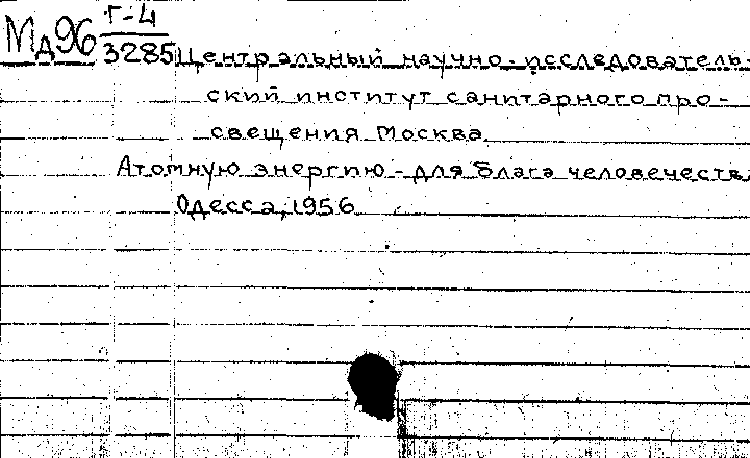 Мд96 Г-4
3285 Центральный научно-исследователь-
ский институт санитарного про-
свещения Москва.
Атомную энергию - для блага человечеств
Одесса, 1956